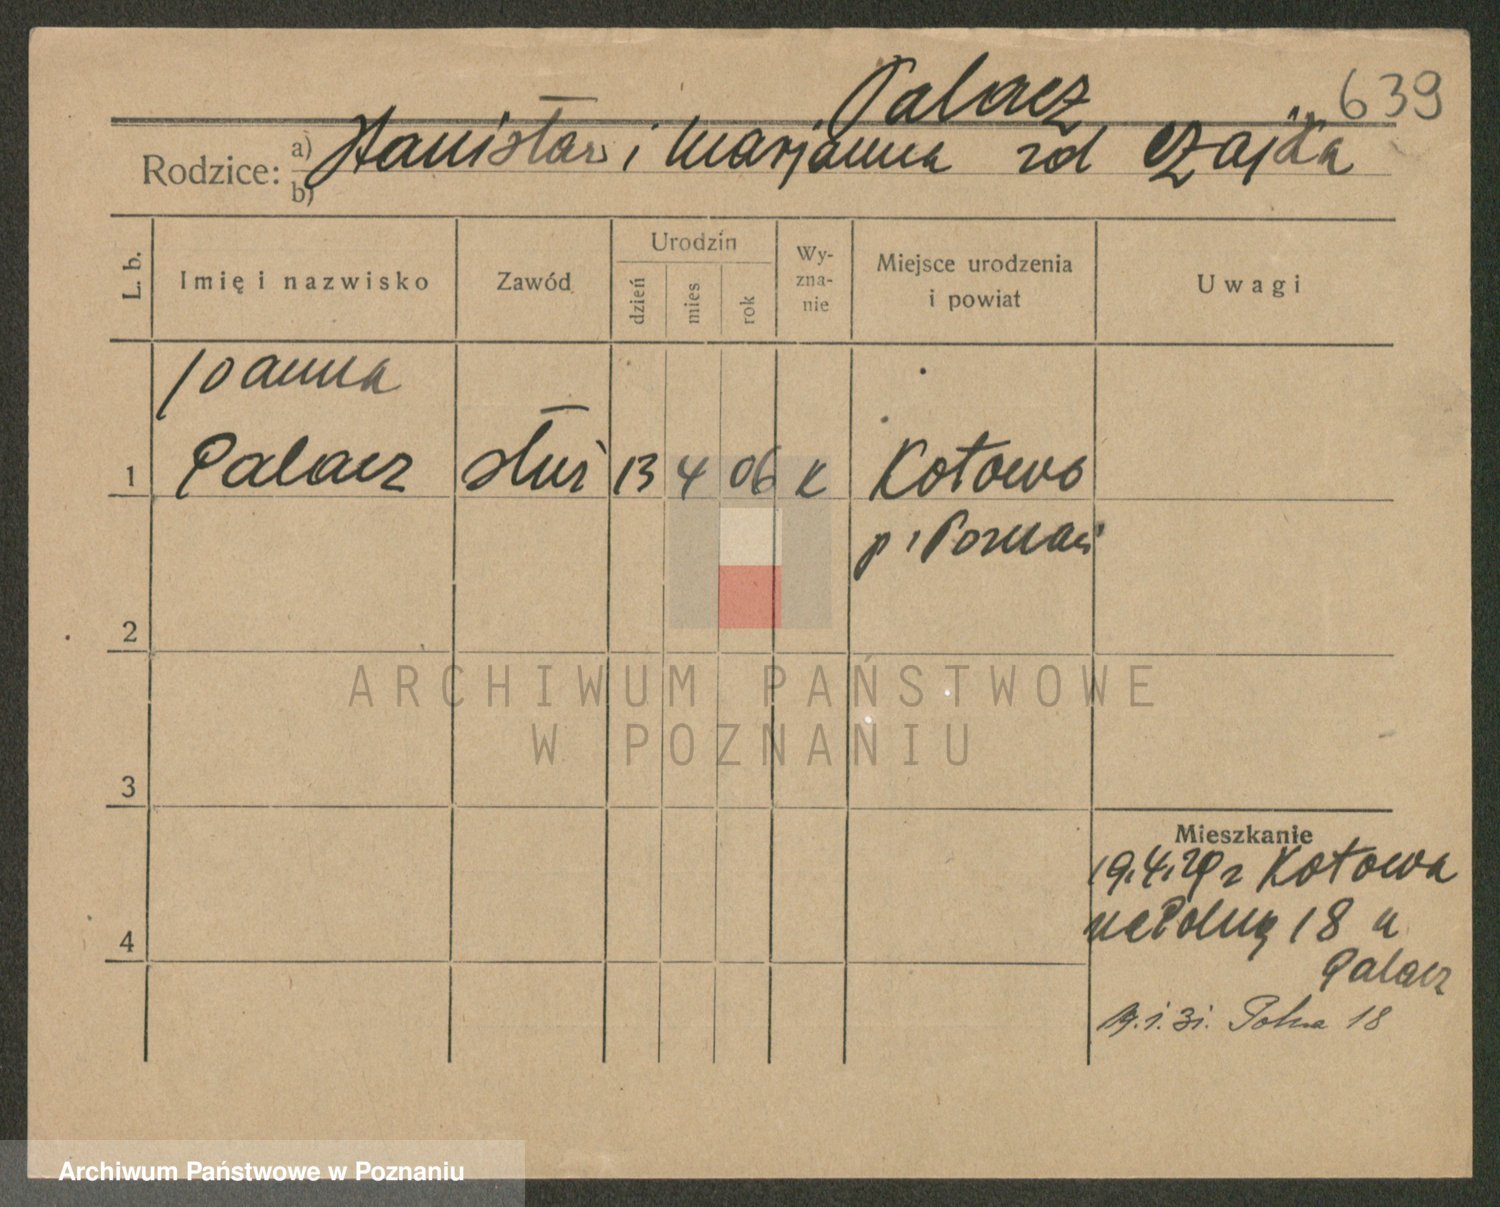 Palacz 639
Rodzice: a) Stanisław i Marjanna zd Czajka
b)
L. b. Imię i nazwisko Zawód Urodzin dzień mies rok Wy-zna-nie Miejsce urodzenia i powiat Uwagi
Joanna
1 Palacz służ 13 4 06 K Kotowo
p. Poznań
2
ARCHIWUM PAŃSTWOWE
W POZNANIU
3
Mieszkanie
19.4.29 z Kotowa
na Polną 18 u
4
Palacz
1.31. Polna 18
Archiwum Państwowe w Poznaniu